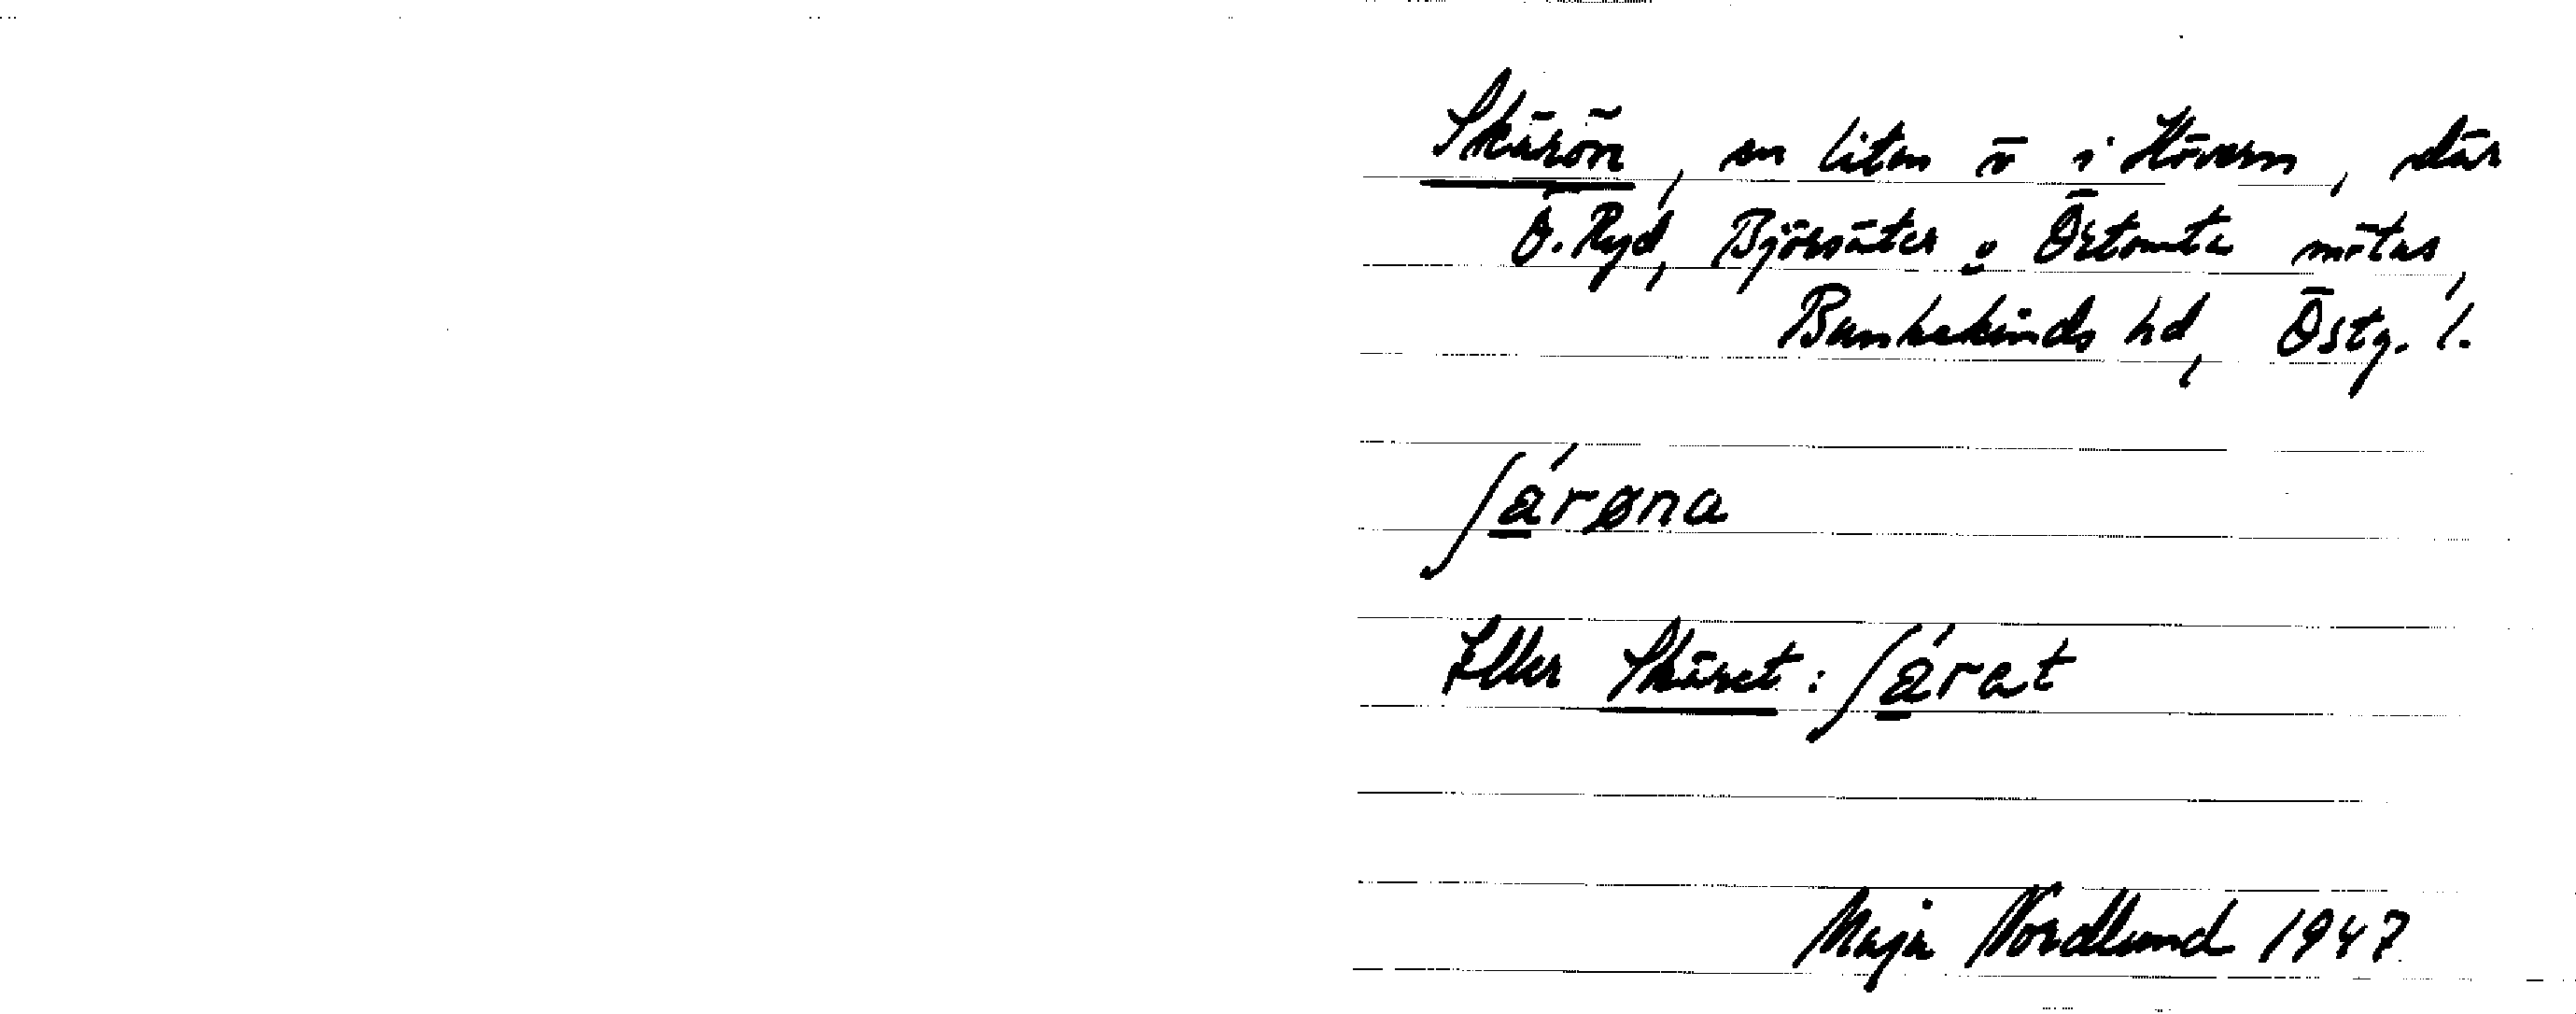 Skärön, en liten ö i Hövern, där
Ö. Ryd, Björsäter o Örtomta mötas,
Bankekinds hd, Östg. l.
ʃárøna
Eller Skäret: ʃárat
Maja Nordlund 1947